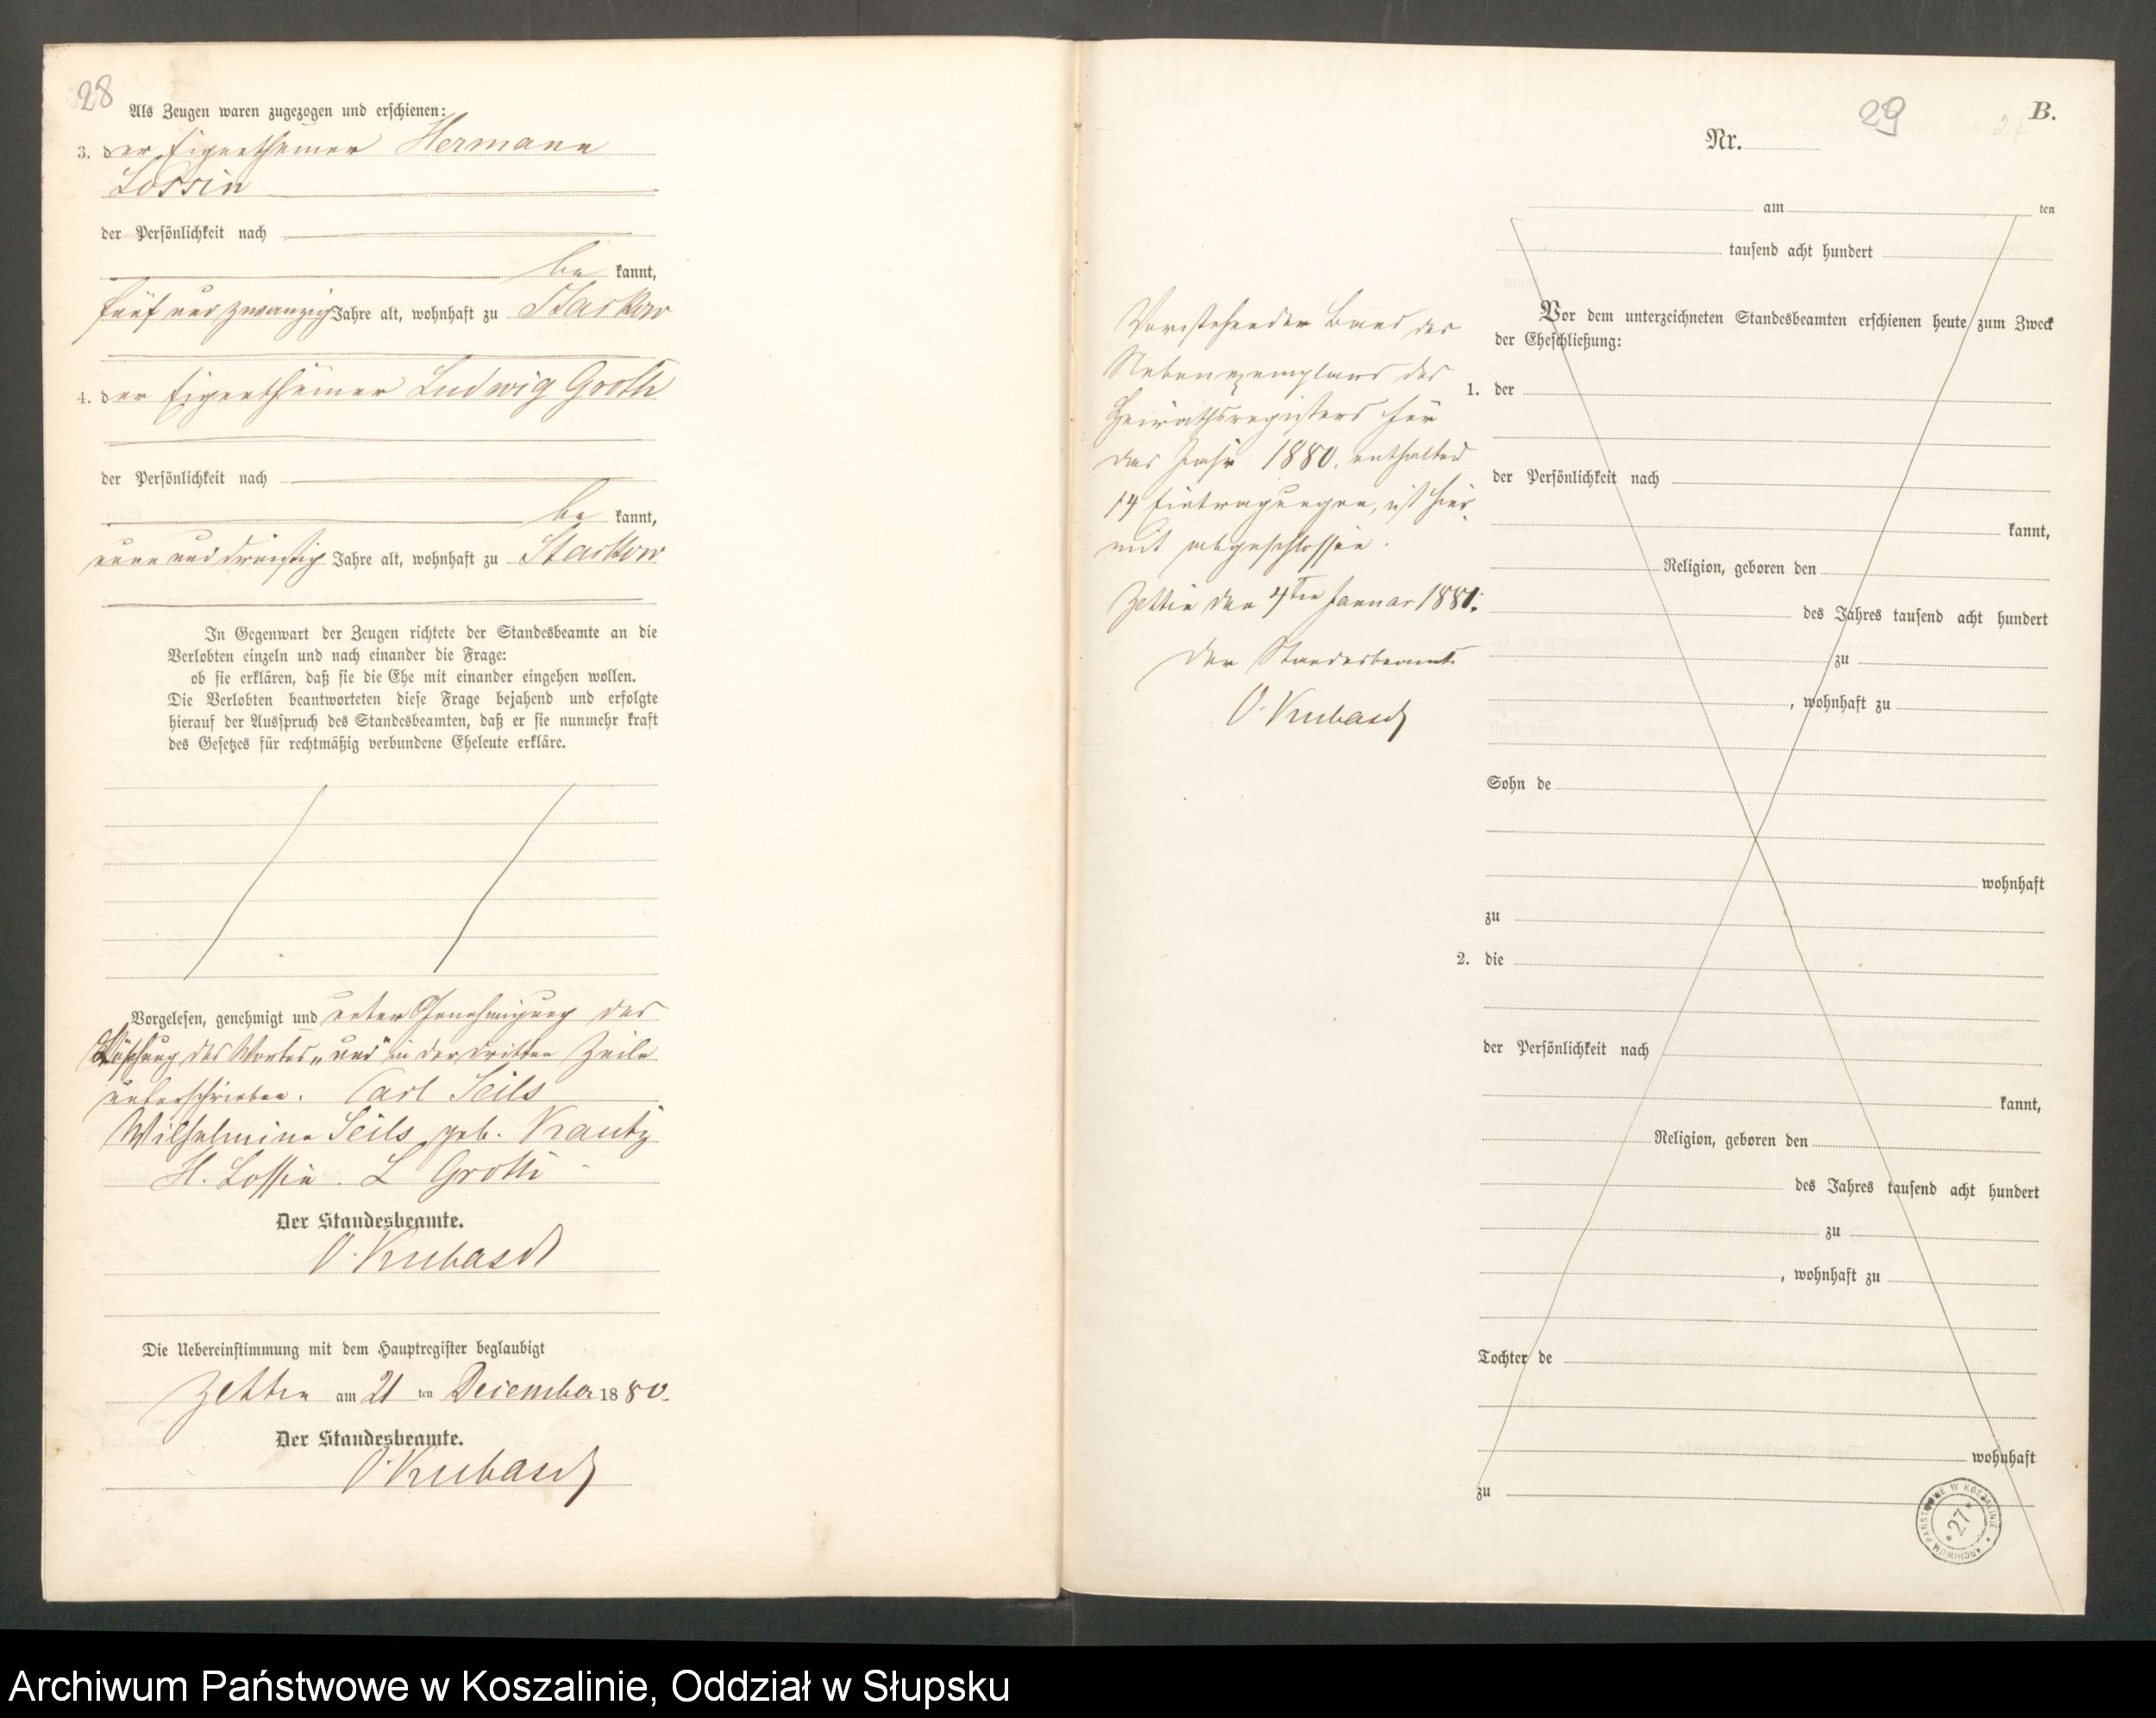 28
Als Zeugen waren zugezogen und erschienen:
3. der Eigenthümer Hermann
Lossin
der Persönlichkeit nach
be kannt,
fünf und zwanzig Jahre alt, wohnhaft zu Starkow
4. der Eigenthümer Ludwig Groth
der Persönlichkeit nach
be kannt,
und dreißig Jahre alt, wohnhaft zu Starkow
In Gegenwart der Zeugen richtete der Standesbeamte an die
Verlobten einzeln und nach einander die Frage:
ob sie erklären, daß sie die Ehe mit einander eingehen wollen.
Die Verlobten beantworteten diese Frage bejahend und erfolgte
hierauf der Ausspruch des Standesbeamten, daß er sie nunmehr kraft
des Gesetzes für rechtmäßig verbundene Eheleute erkläre.
Vorgelesen, genehmigt und unter Genehmigung der
Löschung des Wortes „und" in der dritten Zeile
unterschrieben. Carl Seils
Wilhelmine Seils geb. Kautz
H. Lossin. L Groth
Der Standesbeamte.
O. Kubasch
Die Uebereinstimmung mit dem Hauptregister beglaubigt
Zettin am 21 ten Dezember 1880.
Der Standesbeamte.
O. Kubasch
29
B.
Nr.
am ten
tausend acht hundert
Vor dem unterzeichneten Standesbeamten erschienen heute zum Zweck
der Eheschließung:
1. der
der Persönlichkeit nach
kannt,
Religion, geboren den
des Jahres tausend acht hundert
zu
, wohnhaft zu
Sohn de
wohnhaft
zu
2. die
der Persönlichkeit nach
kannt,
Religion, geboren den
des Jahres tausend acht hundert
zu
, wohnhaft zu
Tochter de
wohnhaft
zu
Vorstehender Band des
Nebenexemplars des
Heirathsregisters für
das Jahr 1880. enthaltend
14 Eintragungen, ist hier
mit abgeschlossen.
Zettin den 4ten Januar 1881.
Der Standesbeamte
O. Kubasch
ARCHIWUM PAŃSTWOWE W KOSZALINIE
* 27 *
Archiwum Państwowe w Koszalinie, Oddział w Słupsku